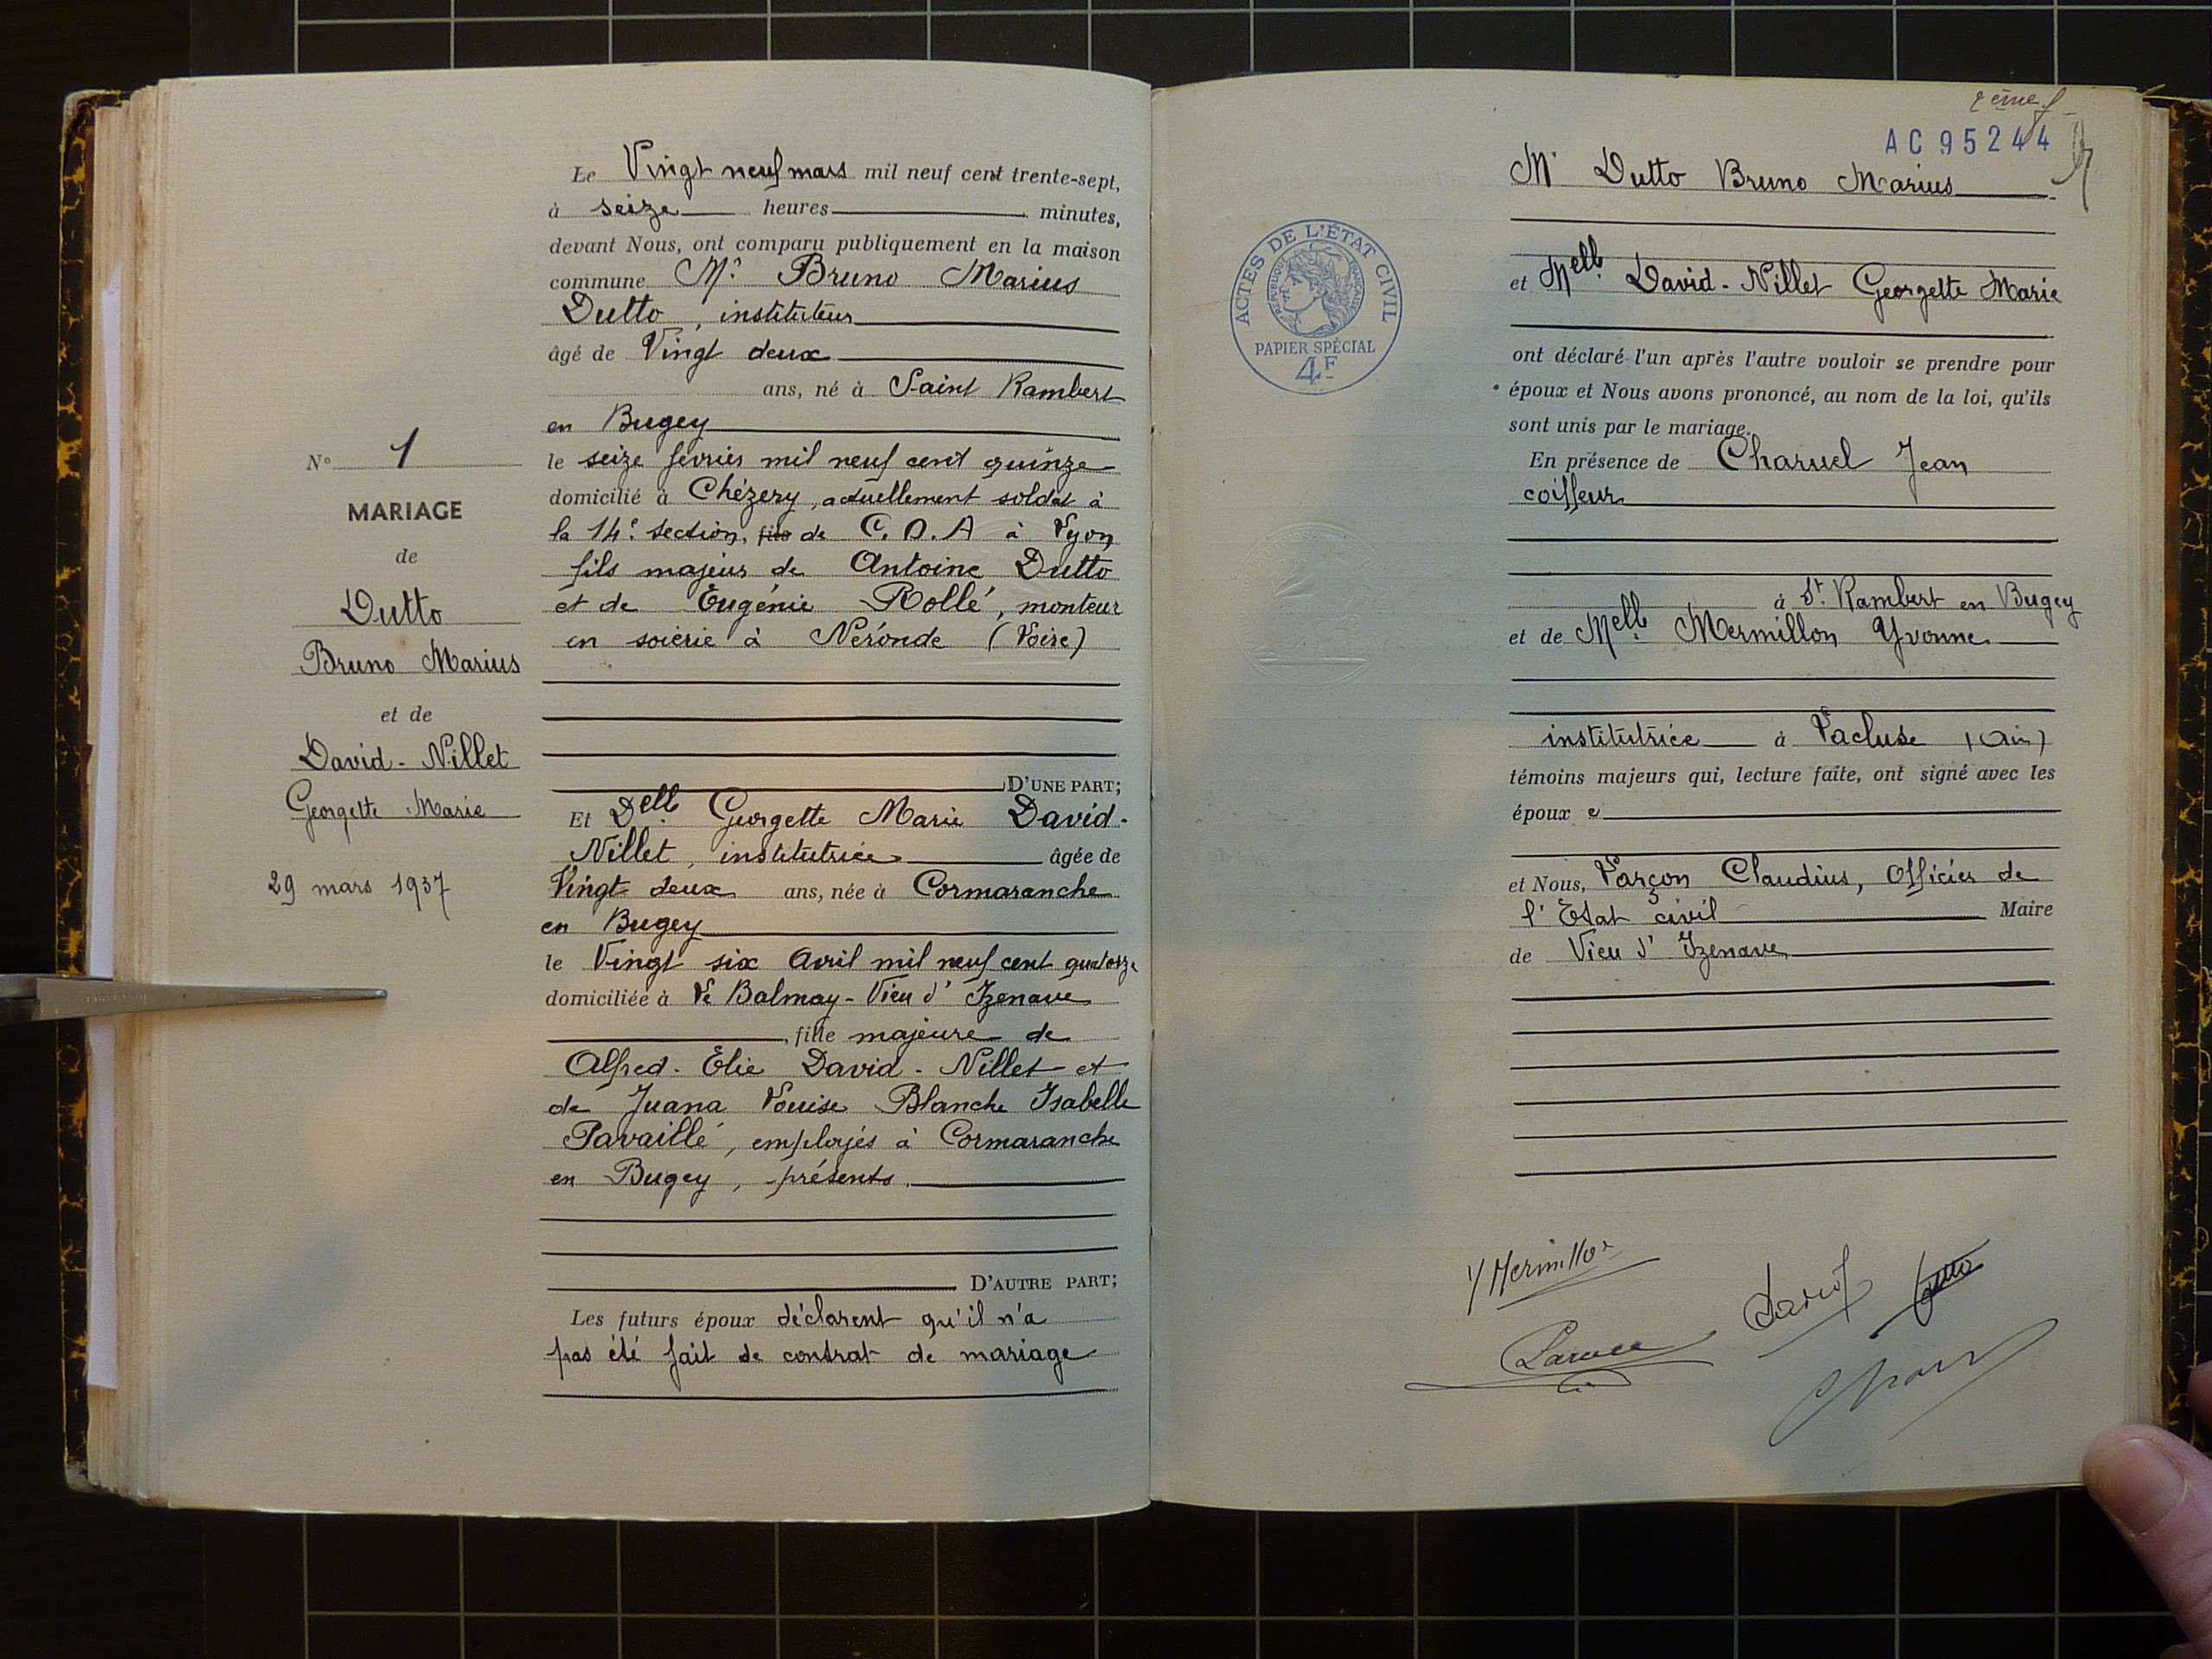 N° 1
MARIAGE
de
Dutto
Bruno Marius
et de
David-Nillet
Georgette Marie
29 mars 1937
Le Vingt neuf mars mil neuf cent trente-sept,
à seize heures minutes,
devant Nous, ont comparu publiquement en la maison
commune Mr Bruno Marius
Dutto, instituteur
âgé de Vingt deux
ans, né à Saint Rambert
en Bugey
le seize février mil neuf cent quinze
domicilié à Chézery, actuellement soldat à
la 14e section, fils de C.O.A à Lyon
fils majeur de Antoine Dutto
et de Eugénie Rollé, monteur
en soierie à Néronde (Loire)
D'UNE PART;
Et Delle Georgette Marie David-
Nillet, institutrice âgée de
Vingt deux ans, née à Cormaranche
en Bugey
le Vingt six Avril mil neuf cent quatorze
domiciliée à Le Balmay-Vieu d'Izenave
, fille majeure de
Alfred-Elie David-Nillet et
de Juana Louise Blanche Isabelle
Pavaillé, employés à Cormaranche
en Bugey, présents.
D'AUTRE PART;
Les futurs époux déclarent qu'il n'a
pas été fait de contrat de mariage
2ème f
AC 95244
Mr Dutto Bruno Marius
ACTES DE L'ÉTAT CIVIL
RÉPUBLIQUE FRANÇAISE
PAPIER SPÉCIAL
4F
et Melle David-Nillet Georgette Marie
ont déclaré l'un après l'autre vouloir se prendre pour
époux et Nous avons prononcé, au nom de la loi, qu'ils
sont unis par le mariage.
En présence de Charvel Jean
coiffeur
à St Rambert en Bugey
et de Melle Mermillon Yvonne
institutrice à Lacluse (Ain)
témoins majeurs qui, lecture faite, ont signé avec les
époux e
et Nous, Larçon Claudius, Officier de
l'Etat civil Maire
de Vieu d'Izenave
Y Mermillon
David
Dutto